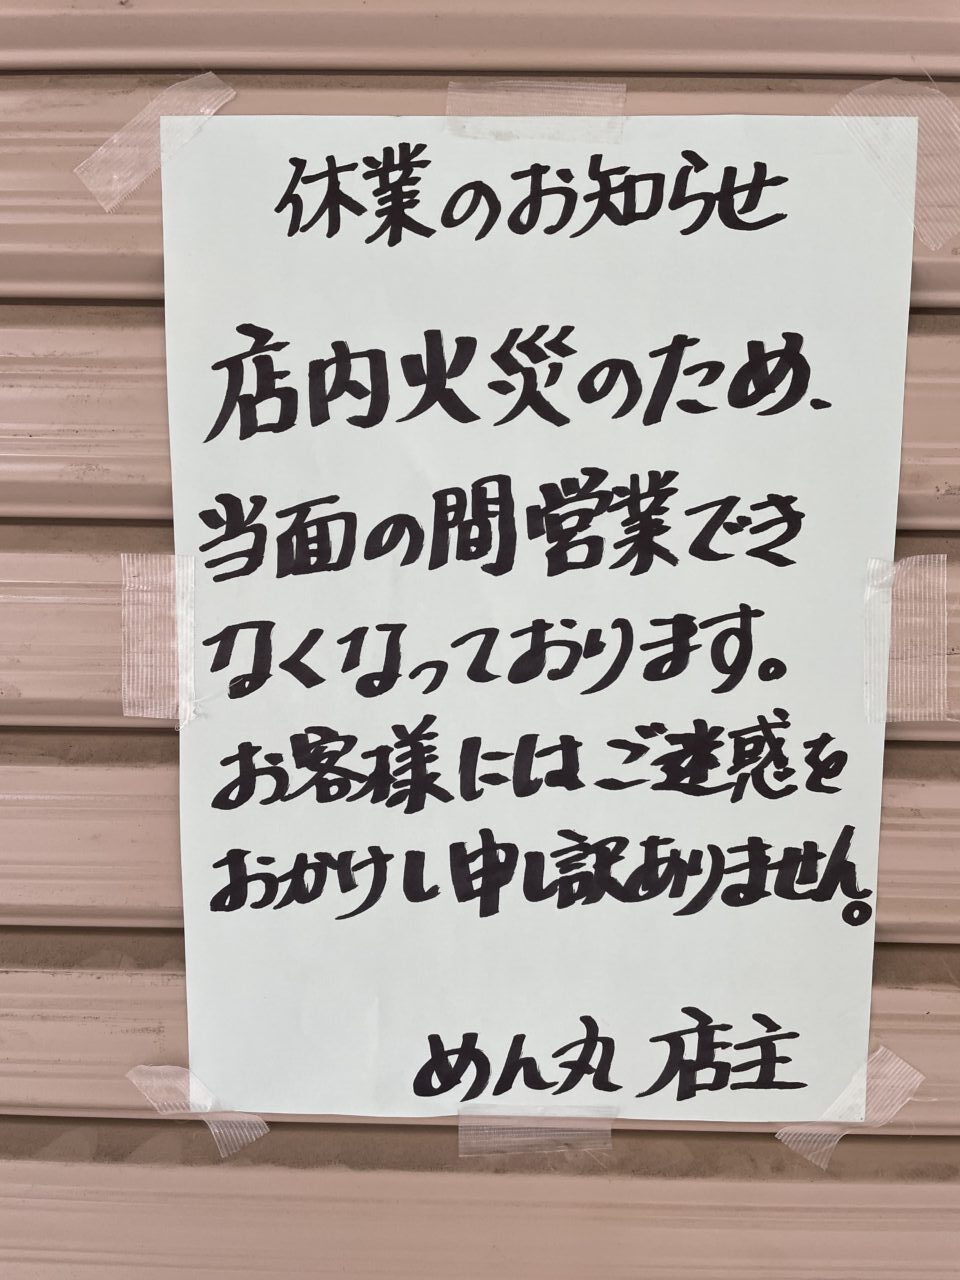 休業のお知らせ
店内火災のため、
当面の間営業でき
なくなっております。
お客様にはご迷惑を
おかけし申し訳ありません。
めん丸 店主